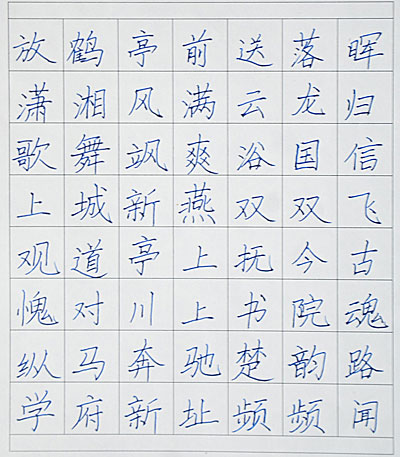 放鹤亭前送落晖
潇湘风满云龙归
歌舞飒爽浴国信
上城新燕双双飞
观道亭上抚今古
愧对川上书院魂
纵马奔驰楚韵路
学府新址频频闻